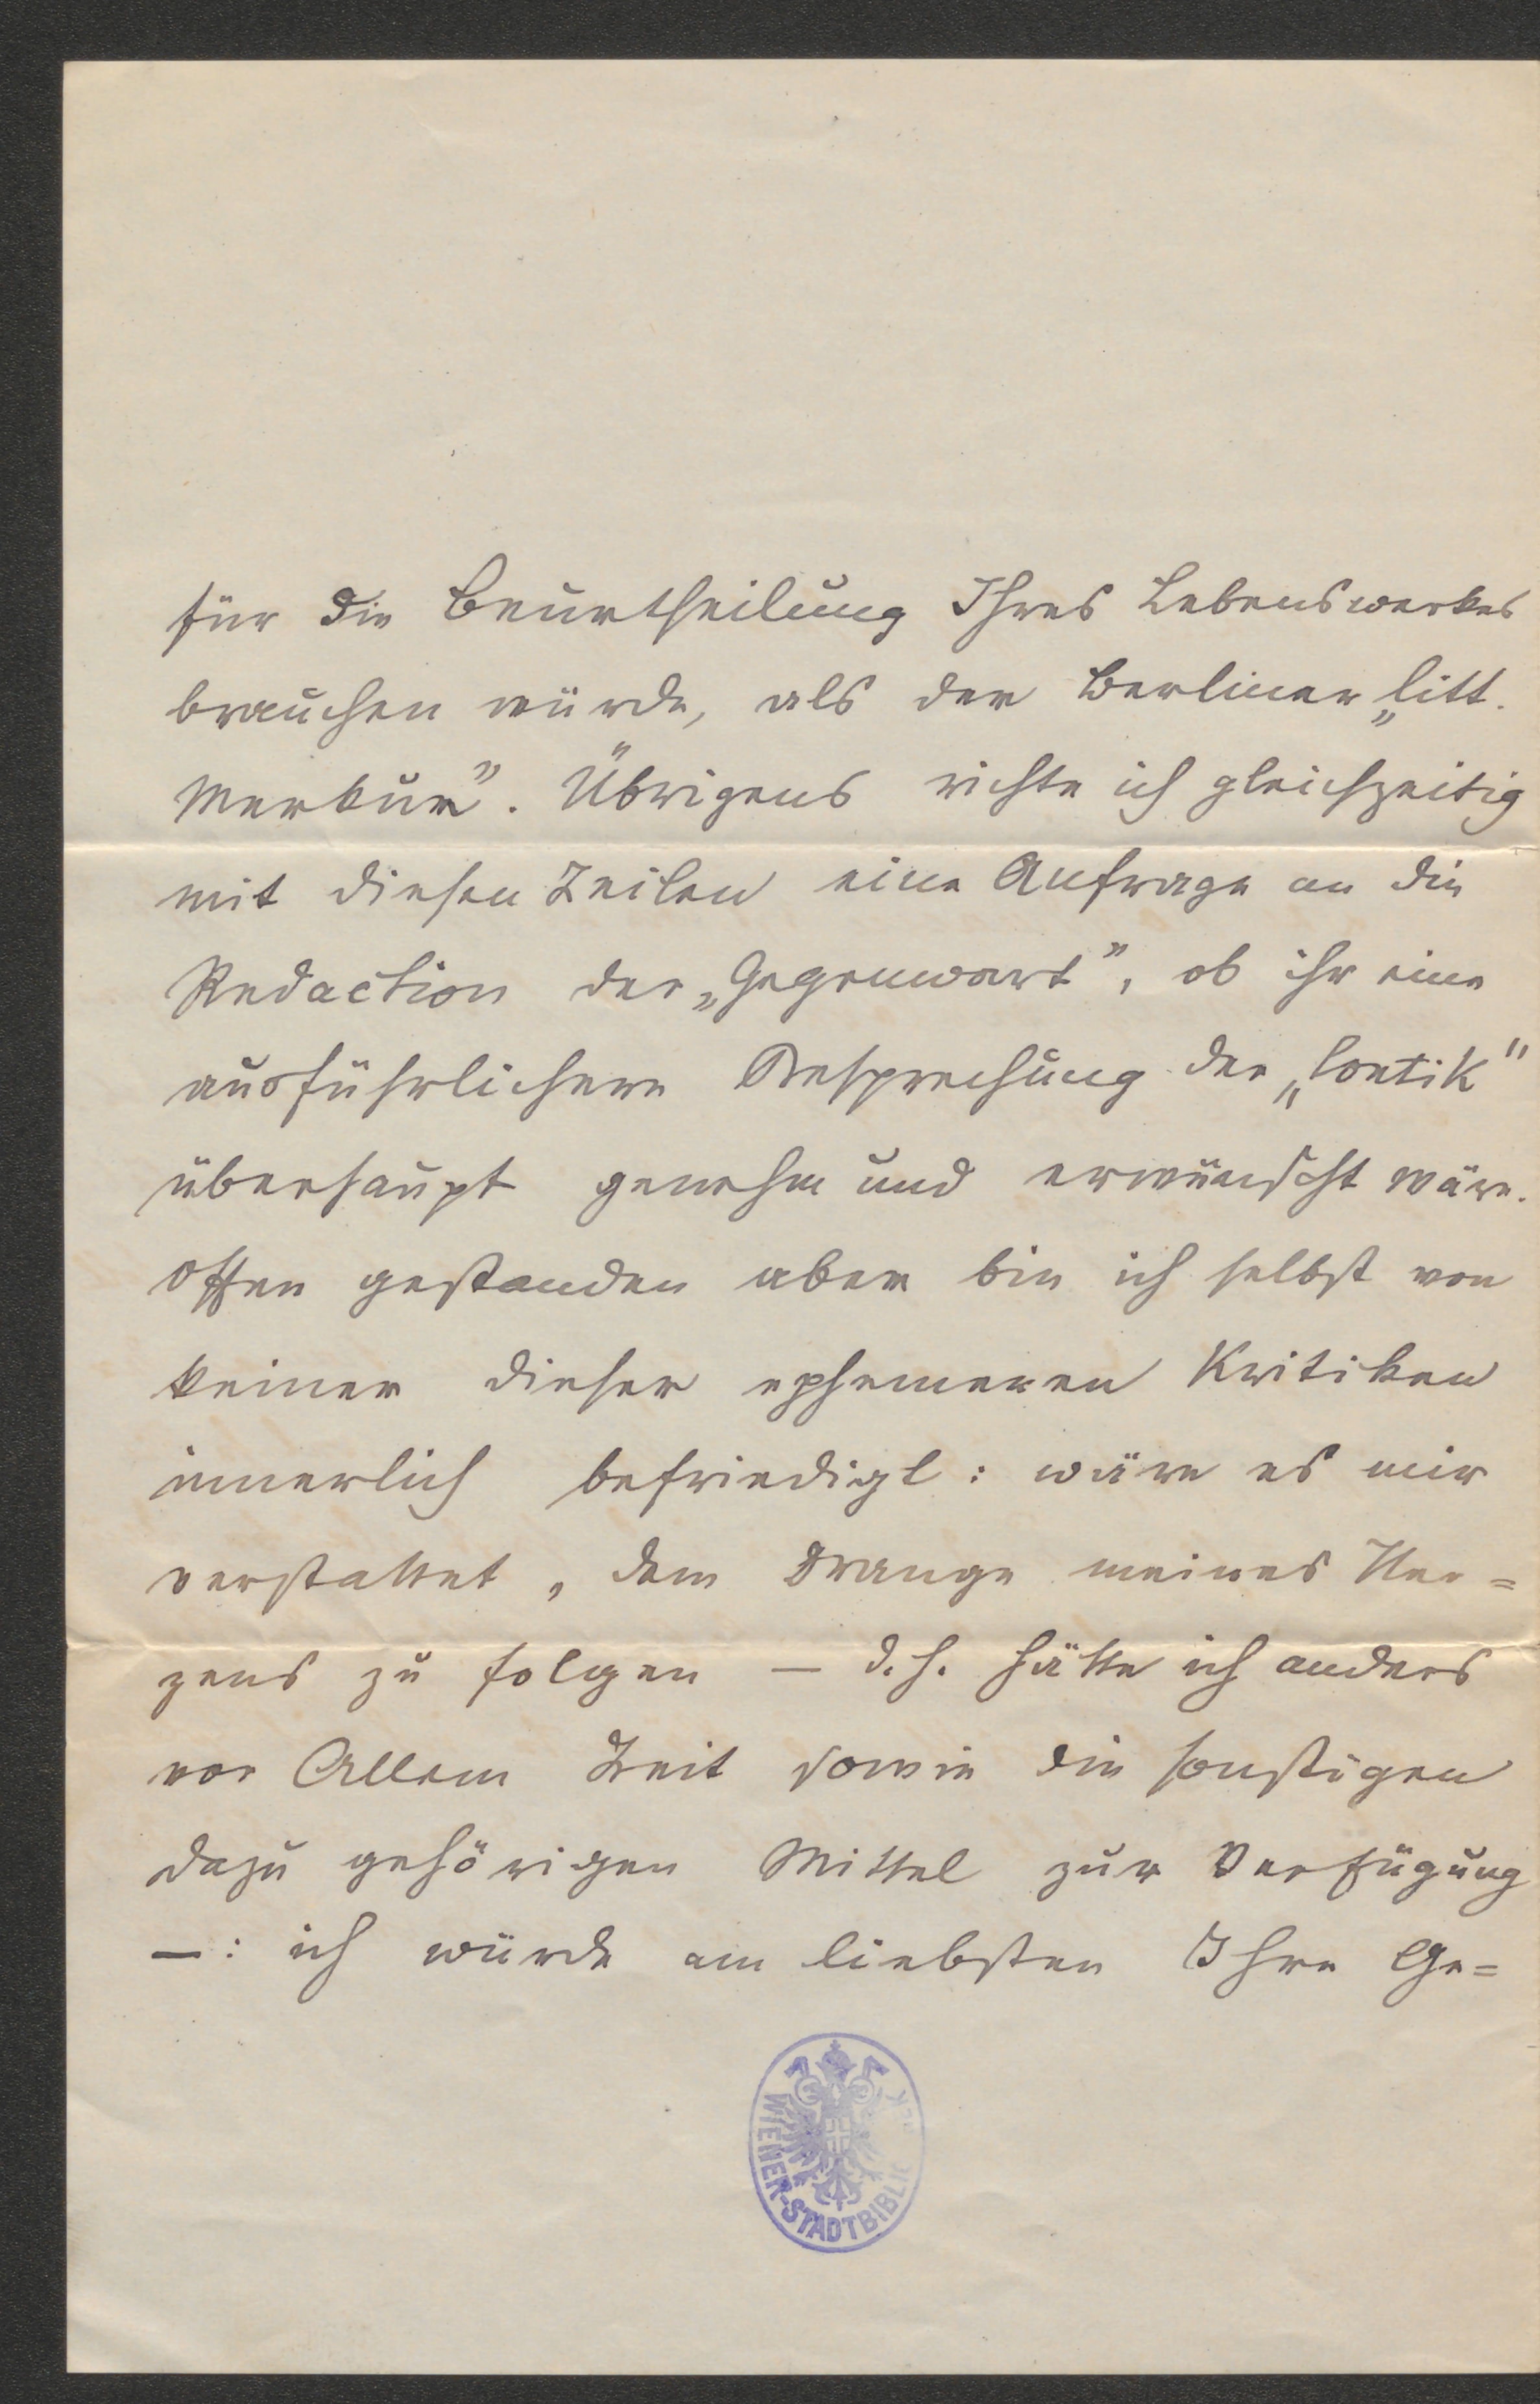 für die Beurtheilung Ihres Lebenswerkes
brauchen würde, als der Berliner „litt.
Merkur”. Übrigens richte ich gleichzeitig
mit diesen Zeilen eine Anfrage an die
Redaction der „Gegenwart”, ob ihr eine
ausführlichere Besprechung der „Poetik”
überhaupt genehm und erwünscht wäre.
Offen gestanden aber bin ich selbst von
keiner dieser ephemeren Kritiken
innerlich befriedigt: wäre es mir
verstattet, dem Drange meines Her=
zens zu folgen — d. h. hätte ich anders
vor Allem Zeit sowie die sonstigen
dazu gehörigen Mittel zur Verfügung
—: ich würde am liebsten Ihre Ge=
WIENER-STADTBIBLIOTHEK